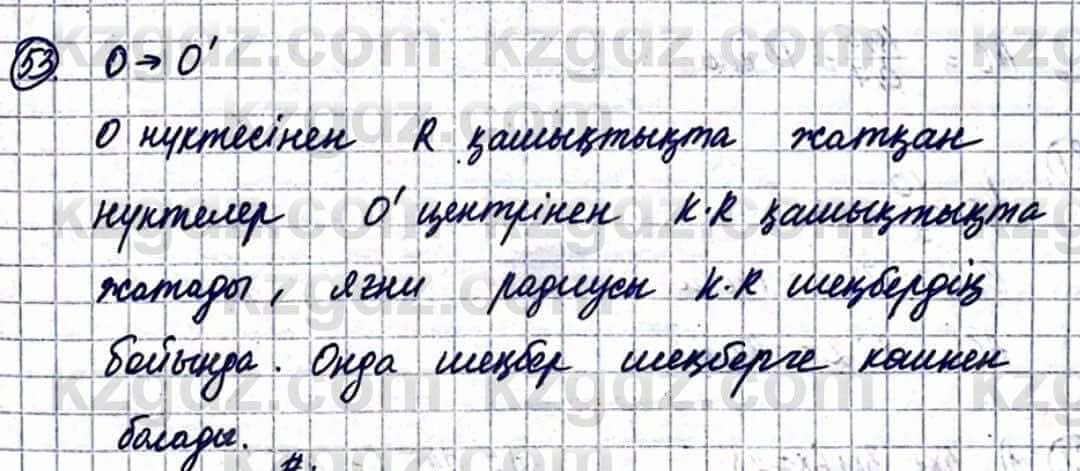 53. O → O'
O нүктесінен R қашықтықта жатқан
нүктелер O' центрінен K·R қашықтықта
жатады, яғни радиусы K·R шеңбердің
бойында. Онда шеңбер шеңберге көшкен
болады.
#.
kzgdz.com